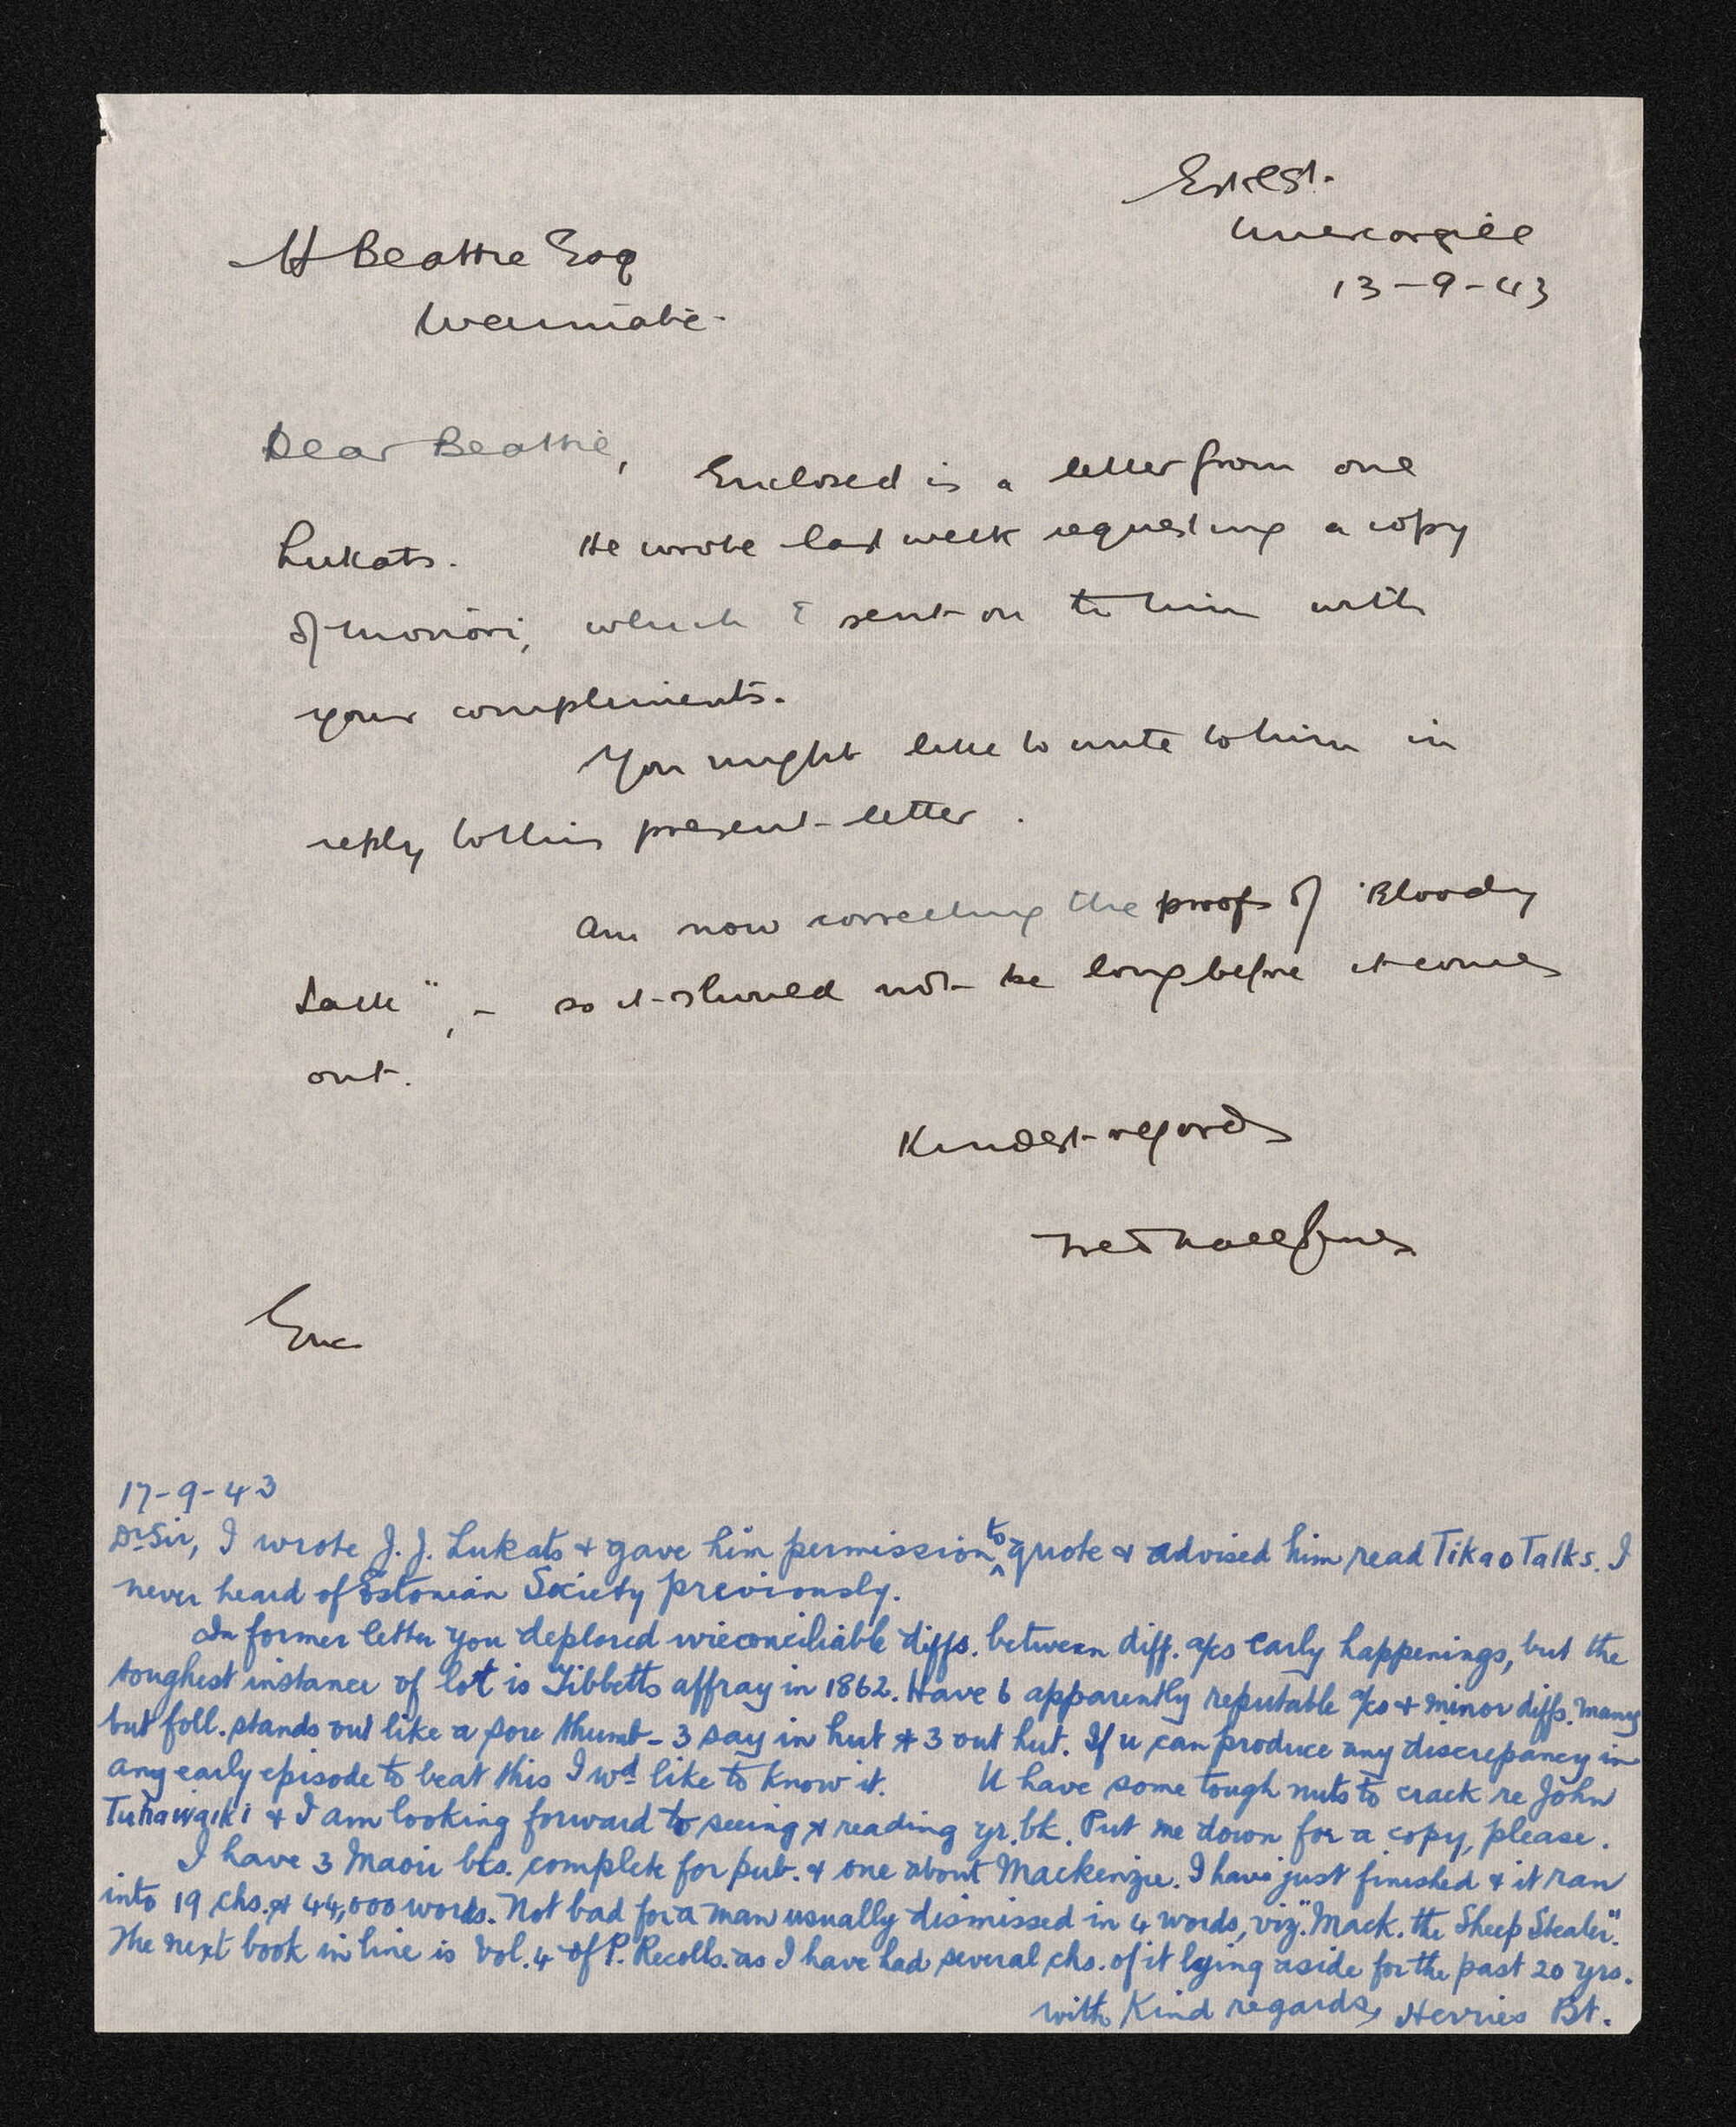 Esk St.
Invercargill
13-9-43
H Beattie Esq
Waimate.
Dear Beattie,
Enclosed is a letter from one
Lukats. He wrote last week requesting a copy
of Moriori, which I sent on to him with
your compliments.
You might like to write to him in
reply to this present letter.
Am now correcting the proofs of "Bloody
Jack", - so it should not be long before it comes
out.
Kindest regards
Enc
17-9-43
Dr Sir, I wrote J. J. Lukats & gave him permission to quote & advised him read Tikao Talks. I
never heard of Estonian Society previously.
In former letter you deplored irreconciliable diffs. between diff. a/cs early happenings, but the
toughest instance of lot is Tibbetts affray in 1862. Have 6 apparently reputable a/cs & minor diffs. many
but foll. stands out like a sore thumb - 3 say in hut & 3 out hut. If u can produce any discrepancy in
any early episode to beat this I wd like to know it. U have some tough nuts to crack re John
Tuhawaiki & I am looking forward to seeing & reading yr. bk. Put me down for a copy, please.
I have 3 Maori bks. complete for pub. & one about Mackenzie. I have just finished & it ran
into 19 chs. & 44,000 words. Not bad for a man usually dismissed in 4 words, viz. "Mack. the Sheep Stealer".
The next book in line is Vol. 4 of P. Recolls. as I have had several chs. of it lying aside for the past 20 yrs.
with Kind regards, Herries Bt.